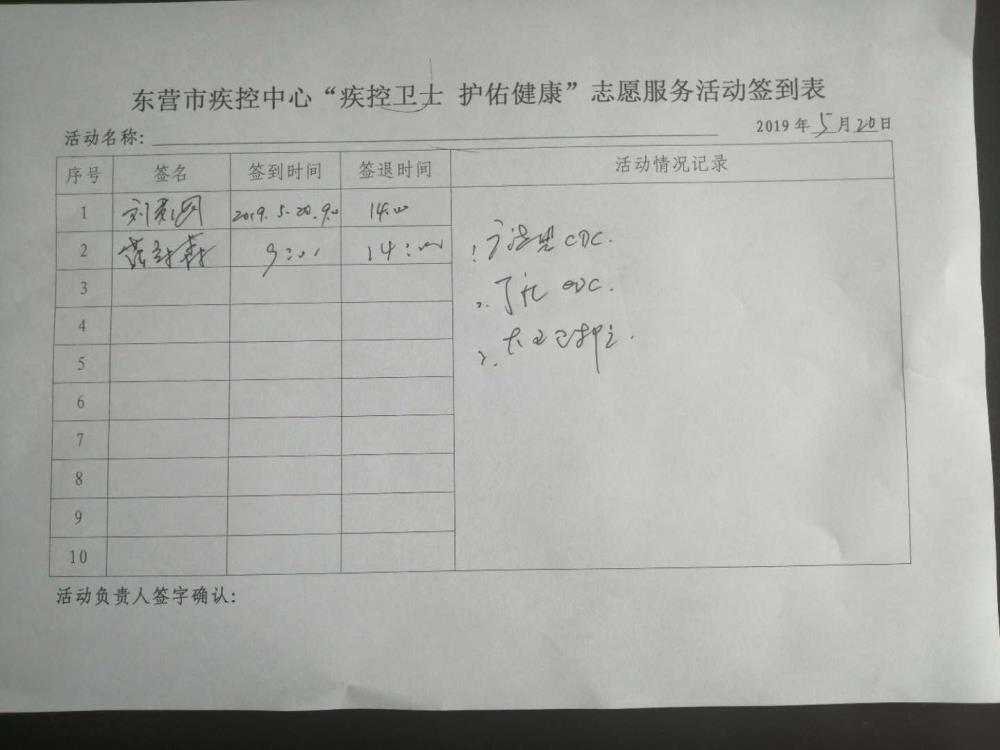 东营市疾控中心“疾控卫士 护佑健康”志愿服务活动签到表
活动名称:
2019年5月20日
序号 签名 签到时间 签退时间 活动情况记录
1 刘 2019.5.20.9:00 14:00
2 9:01 14:00
3
4
5
6
7
8
9
10
1. CDC.
2. CDC.
3.
活动负责人签字确认: